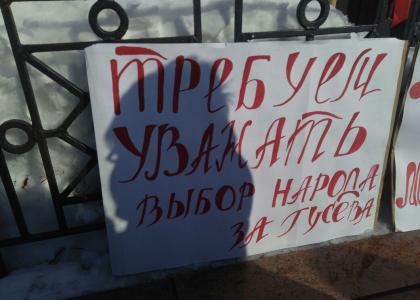 ТРЕБУЕМ
УВАЖАТЬ
ВЫБОР НАРОДА
ЗА ГУСЕВА